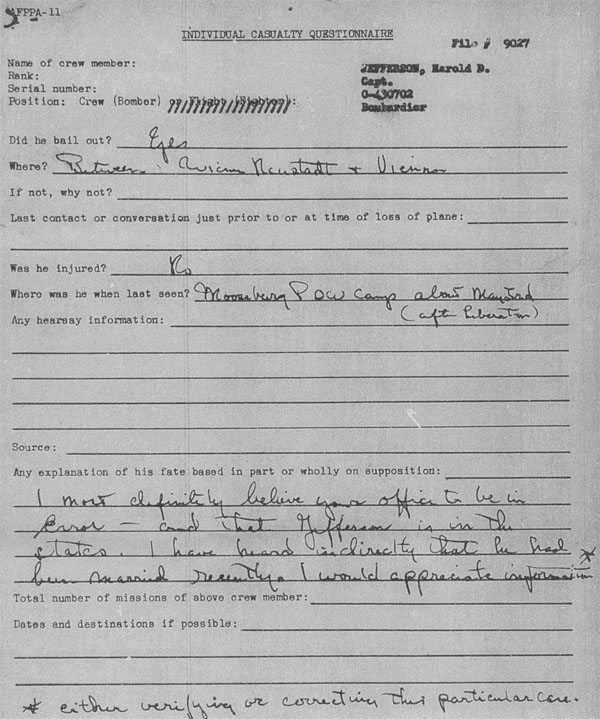 AFPPA-11
INDIVIDUAL CASUALTY QUESTIONNAIRE
File # 9027
Name of crew member: JEFFERSON, Harold D.
Rank: Capt.
Serial number: O-430702
Position: Crew (Bomber) or Flight (Fighter): Bombardier
Did he bail out? Yes
Where? Between Neustadt & Vienna
If not, why not?
Last contact or conversation just prior to or at time of loss of plane:
Was he injured? No
Where was he when last seen? Mooseburg POW Camp about May 3rd
(after liberation)
Any hearsay information:
Source:
Any explanation of his fate based in part or wholly on supposition:
I most definitely believe your office to be in
Error — and that Jefferson is in the
States. I have heard indirectly that he had
been married recently. I would appreciate information *
Total number of missions of above crew member:
Dates and destinations if possible:
* either verifying or correcting this particular case.